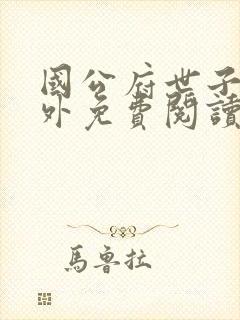 國公府世子
外免費閱讀
馬魯拉